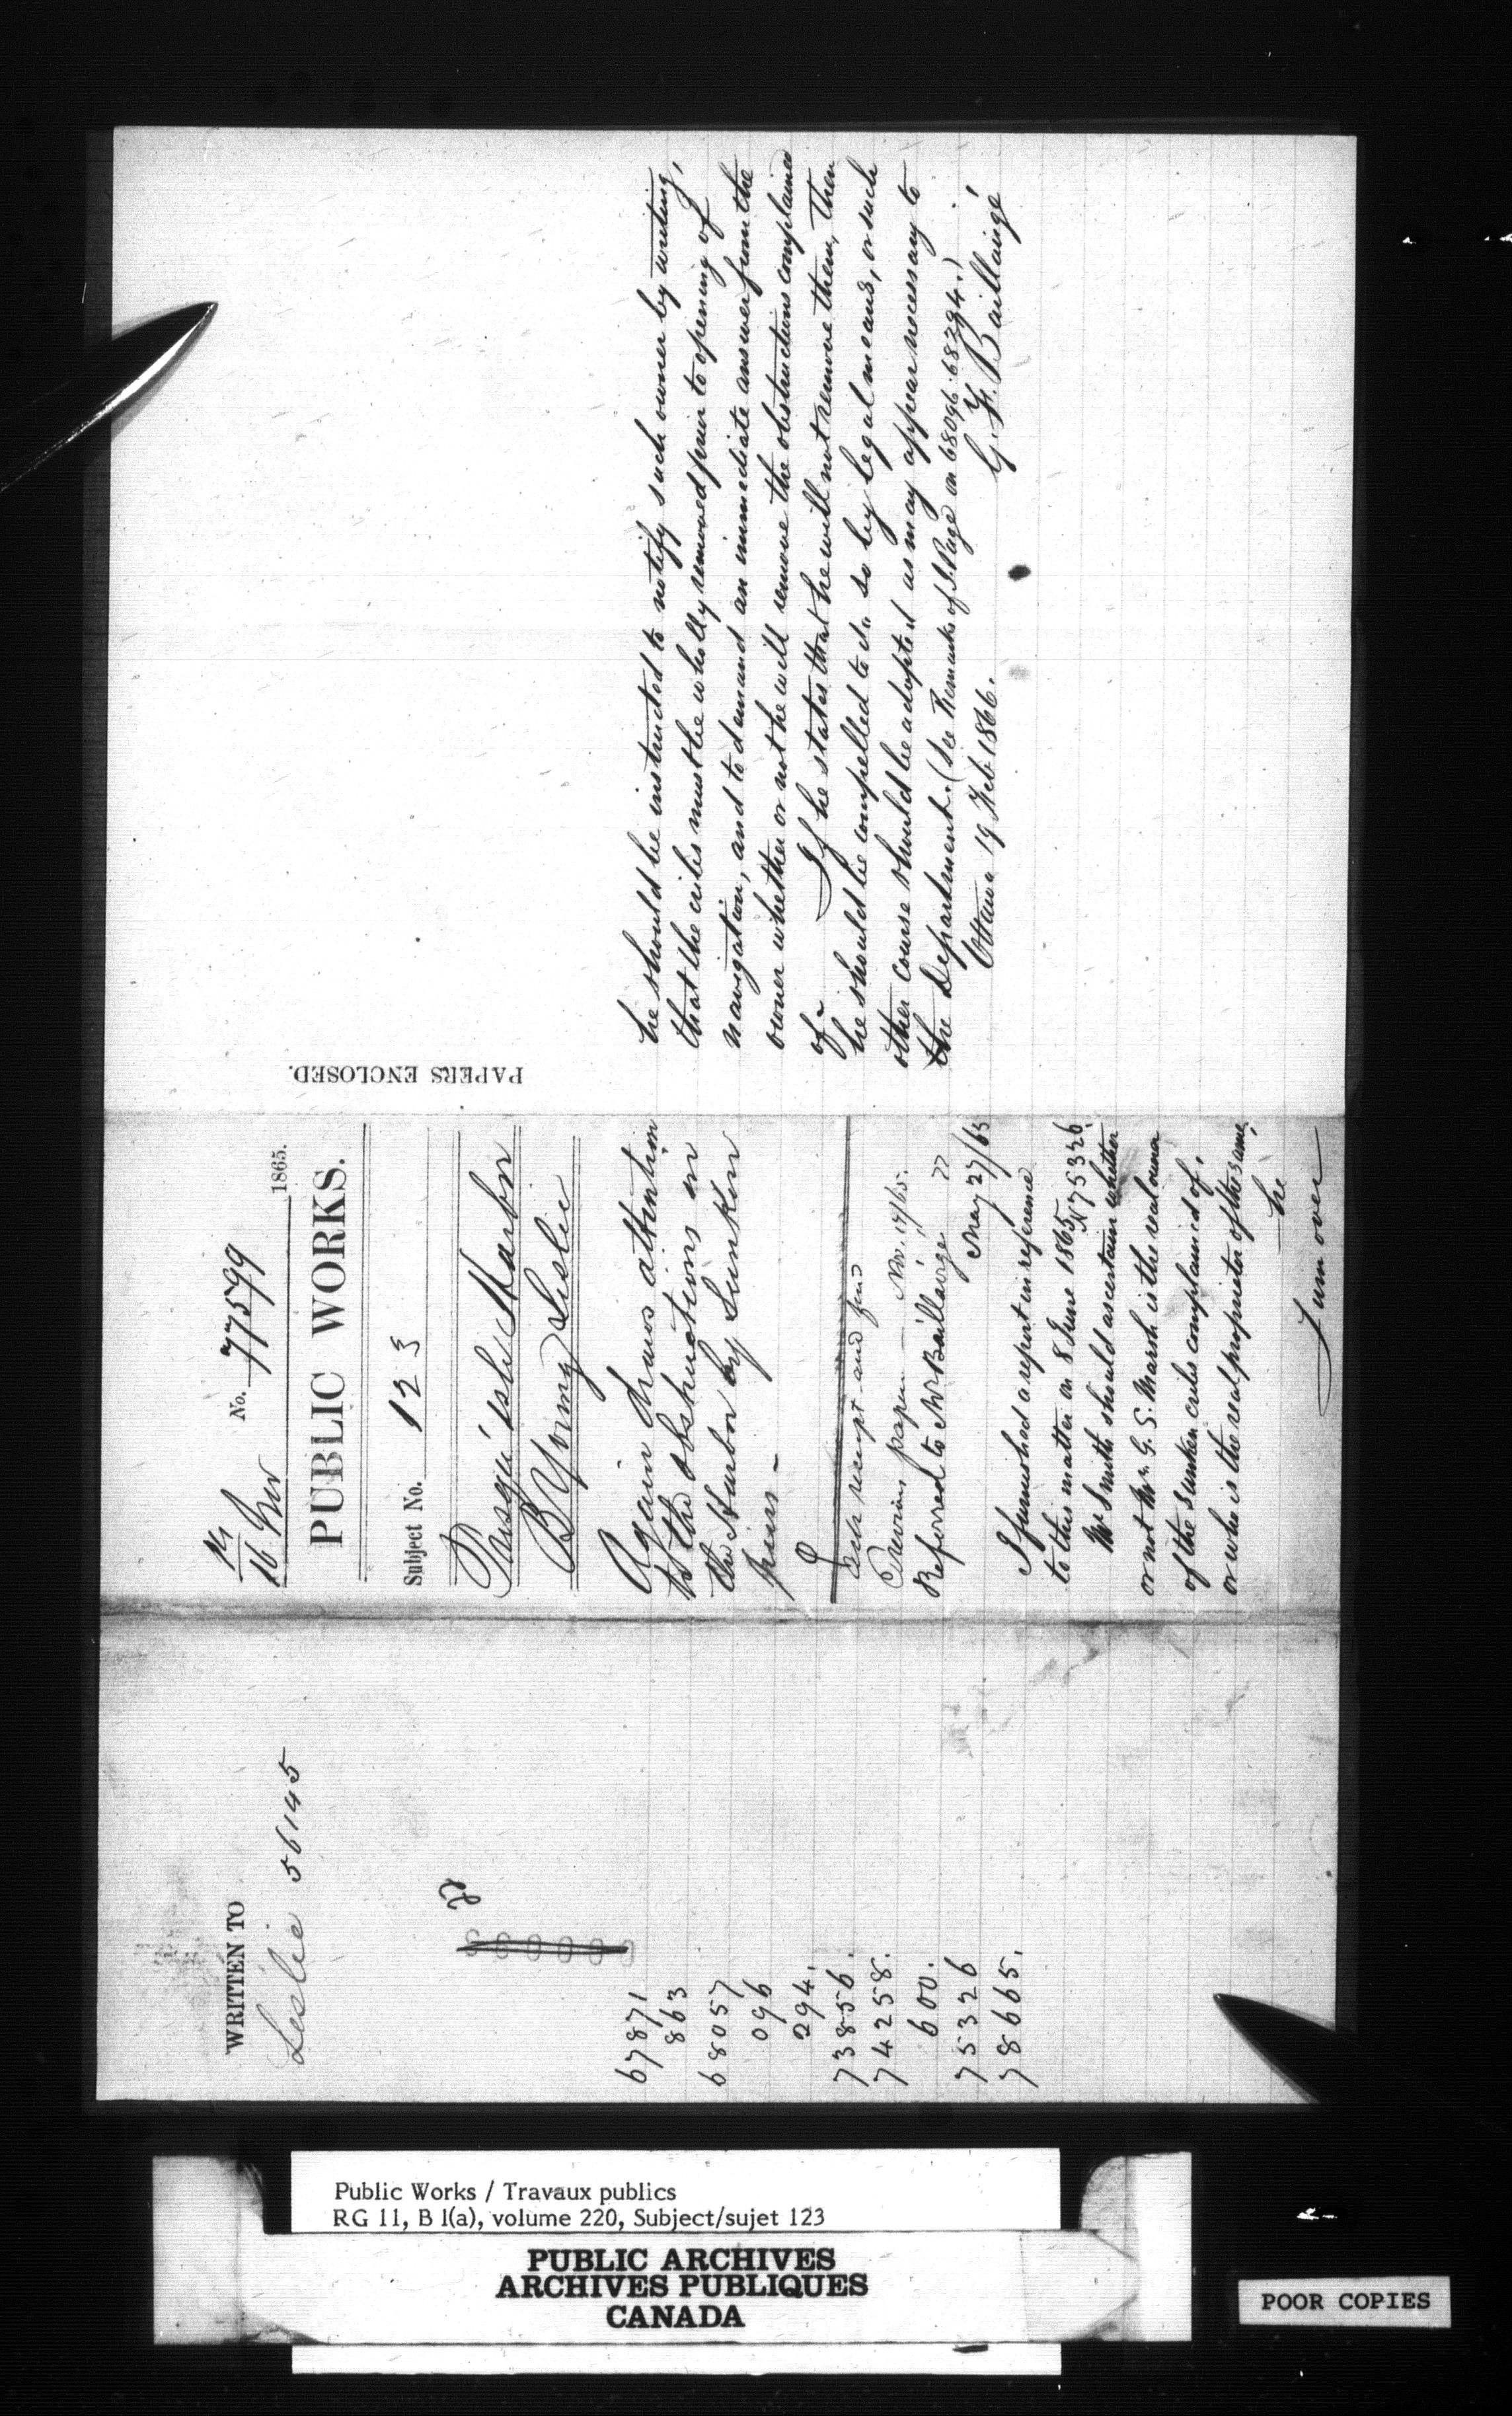 WRITTEN TO
Leslie 56145
67871
863
68057
096
294.
73856.
74258.
600.
75326
78665.
16 Nov
No. 77599
1865.
PUBLIC WORKS.
Subject No. 123
Presqu'isle Harbor
B Young Leslie
Again draws attention
to the obstructions in
the Harbor by Sunken
piers -
Ack receipt and find
Previous papers Nov. 17/65.
Referred to Mr Baillairgé
May 27/65
I furnished a report in reference
to this matter on 8 June 1865, No 75326
Mr Smith should ascertain whether
or not Mr. G. S. Marsh is the real owner
of the sunken cribs complained of,
or who is the real proprietor of the same,
he
Turn over
PAPERS ENCLOSED.
he should be instructed to notify such owner by writing,
that the cribs must be wholly removed prior to opening of
navigation, and to demand an immediate answer from the
owner whether or not he will remove the obstructions complained
of - If he states that he will not remove them, then
he should be compelled to do so by legal means, or such
other course should be adopted as may appear necessary to
the Department. (See Remarks of J. Page on 68096. 68294.)
Ottawa 19 Feb 1866.
G. F. Baillairgé
Public Works / Travaux publics
RG 11, B 1(a), volume 220, Subject/sujet 123
PUBLIC ARCHIVES
ARCHIVES PUBLIQUES
CANADA
POOR COPIES